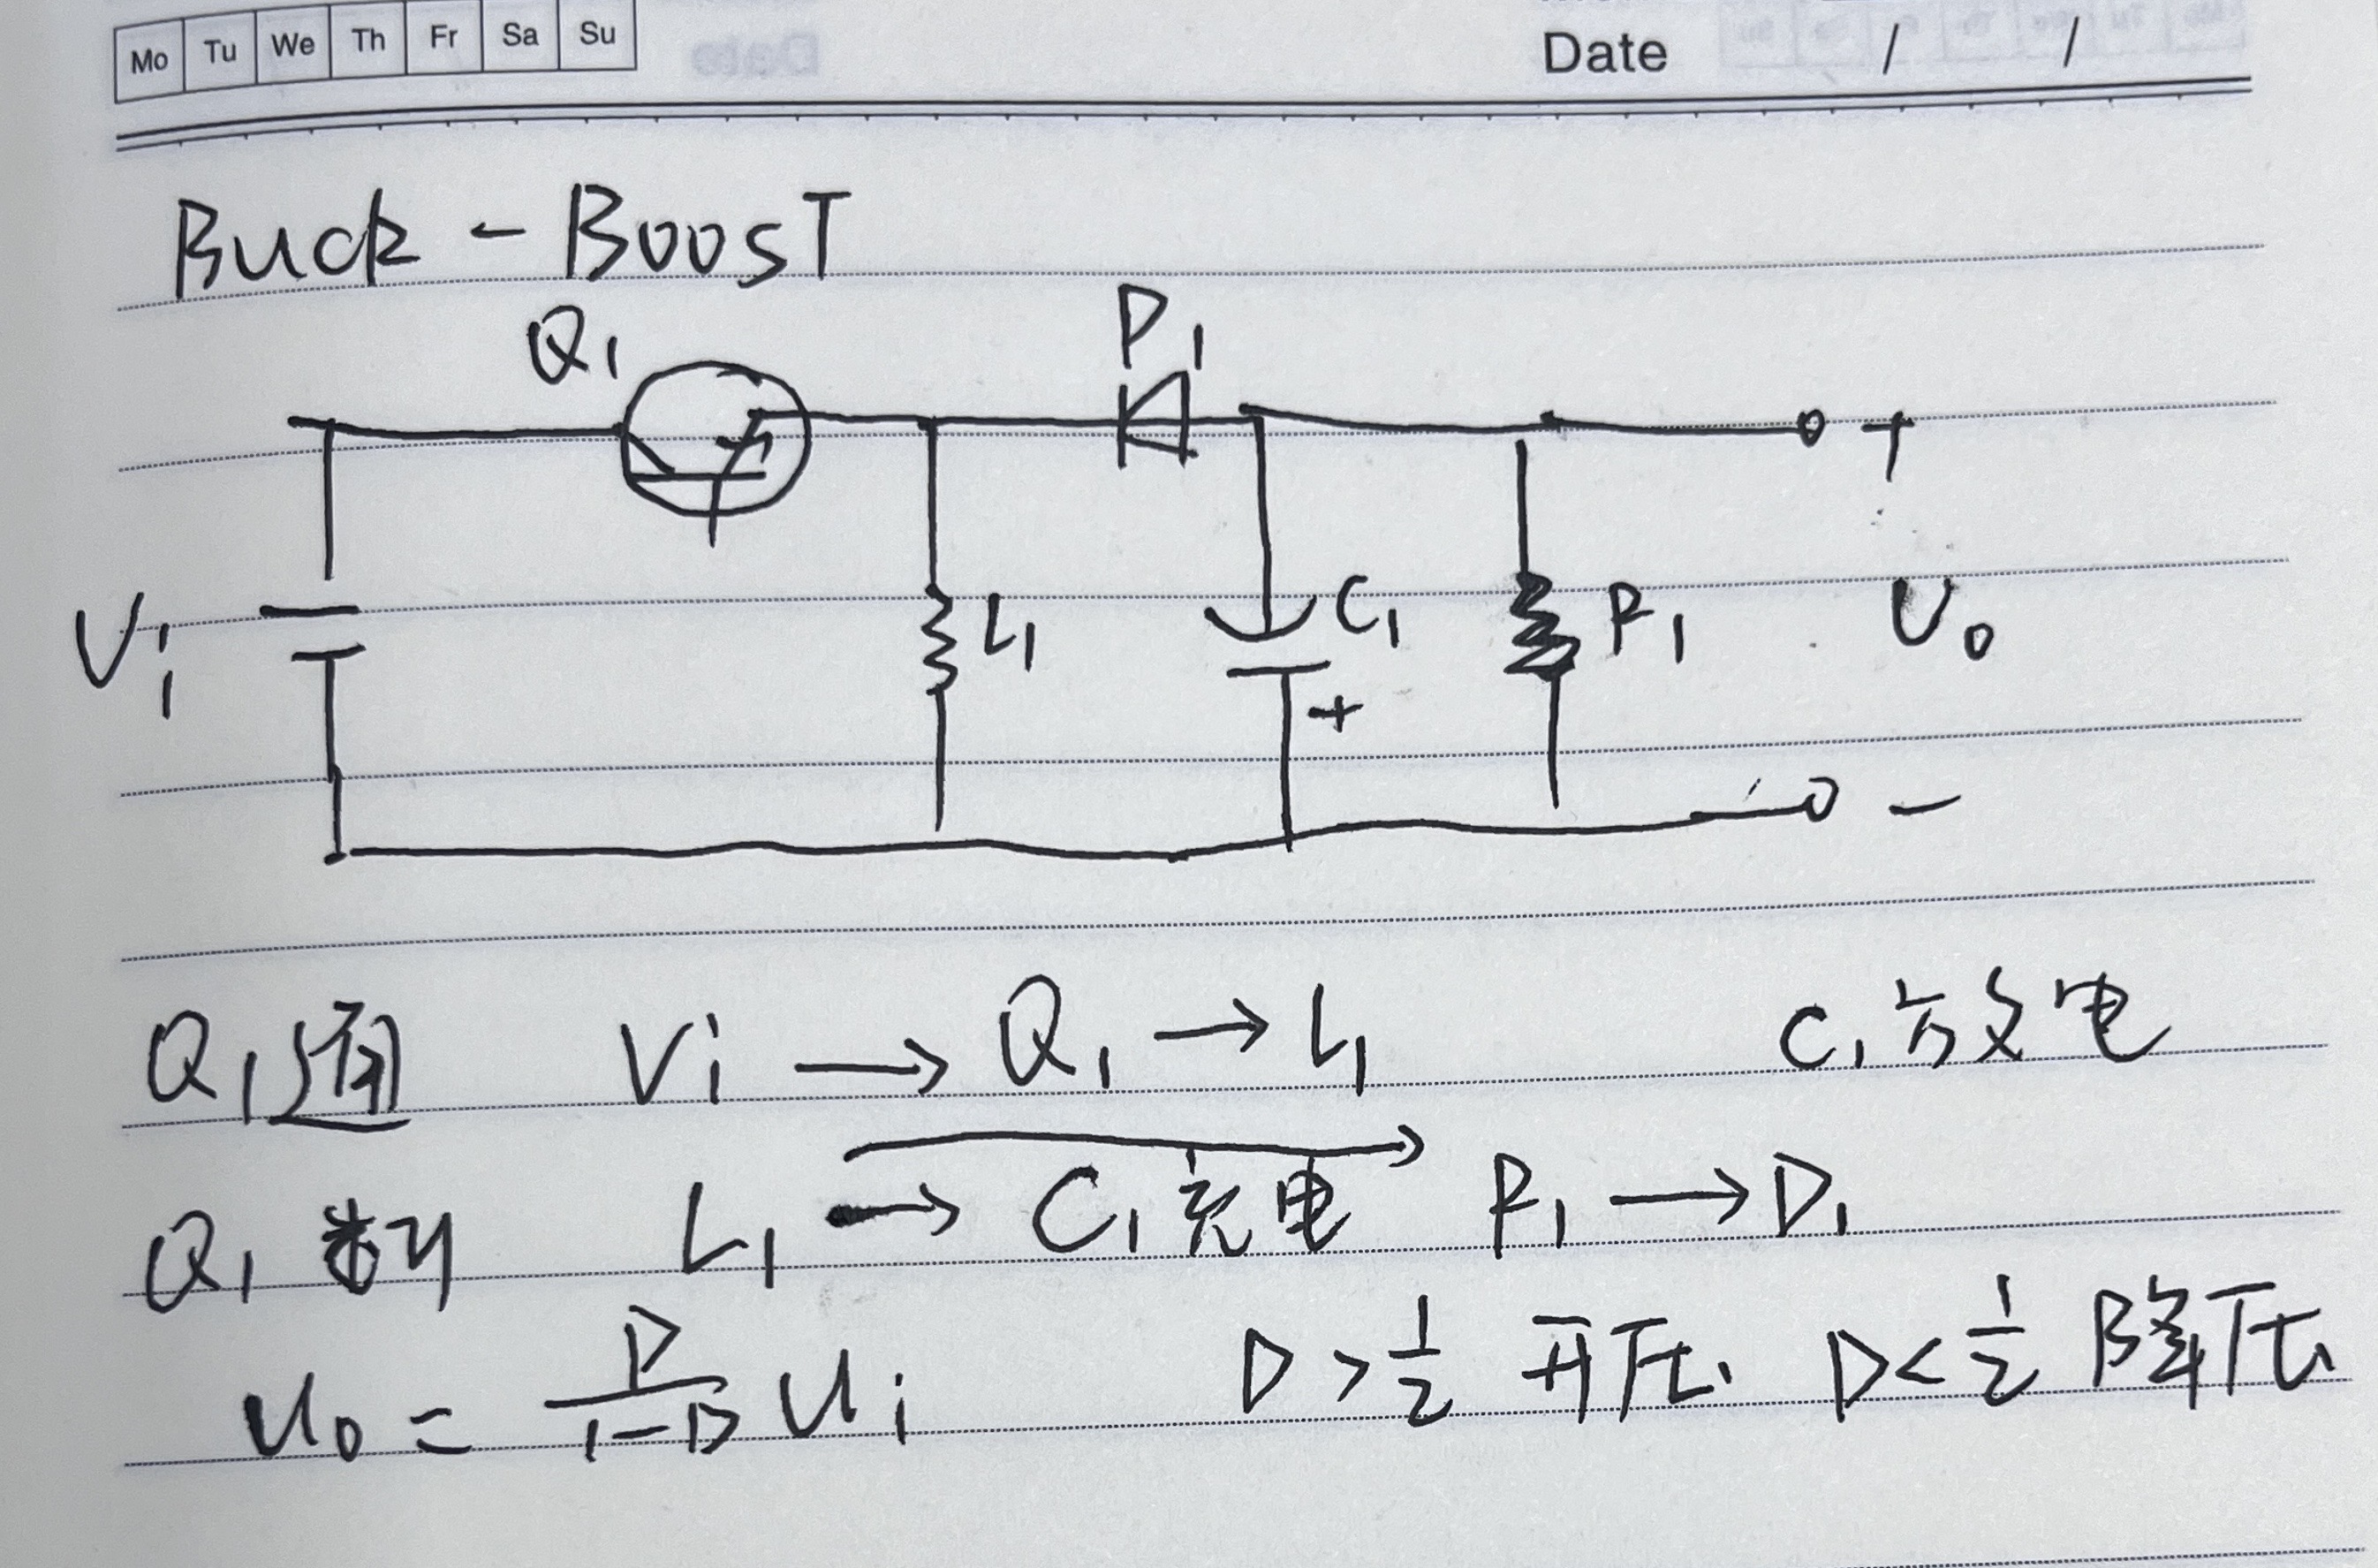 Mo Tu We Th Fr Sa Su
Date / /
Buck-Boost
Q1
D1
+
Vi
L1
C1
R1
Uo
+
-
Q1通 Vi → Q1 → L1 C1放电
Q1断 L1 → C1充电 R1 → D1
Uo = D/(1-D) Ui D > 1/2 升压. D < 1/2 降压